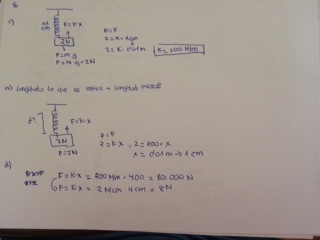 8
c)
11 cm
F=k·x
2N
P=m·g
F=m·g=2N
P=F
2=k·1cm
2=k·0'01m
K=200 N/m
Longitud= lo que se mueve + longitud inicial
d?
F=k·x
2N
P=2N
P=F
2=k·x, 2=200·x
x=0'01m→1cm
d)
F=k·x=200N/m·400=80.000N
P=k·x=2N/cm 4cm=8N